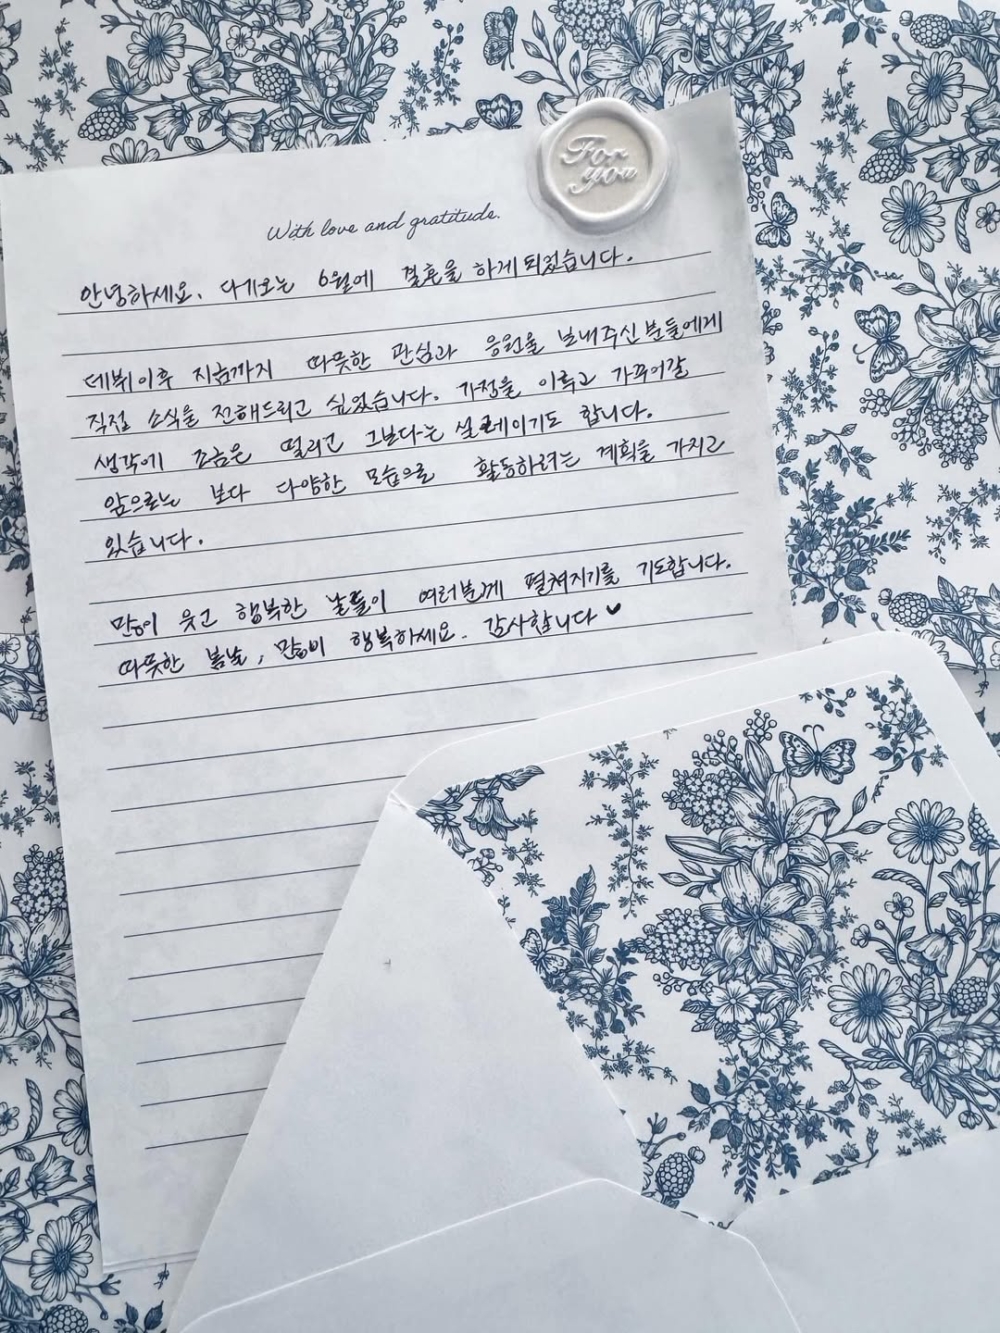 For
you
With love and gratitude.
안녕하세요. 다가오는 6월에 결혼을 하게되었습니다.
데뷔이후 지금까지 따뜻한 관심과 응원을 보내주신분들에게
직접 소식을 전해드리고 싶었습니다. 가정을 이루고 가꾸어갈
생각에 조금은 떨리고 그보다는 설레이기도 합니다.
앞으로는 보다 다양한 모습으로 활동하려는 계획을 가지고
있습니다.
많이 웃고 행복한 날들이 여러분께 펼쳐지기를 기도합니다.
따뜻한 봄날, 많이 행복하세요. 감사합니다 ♥